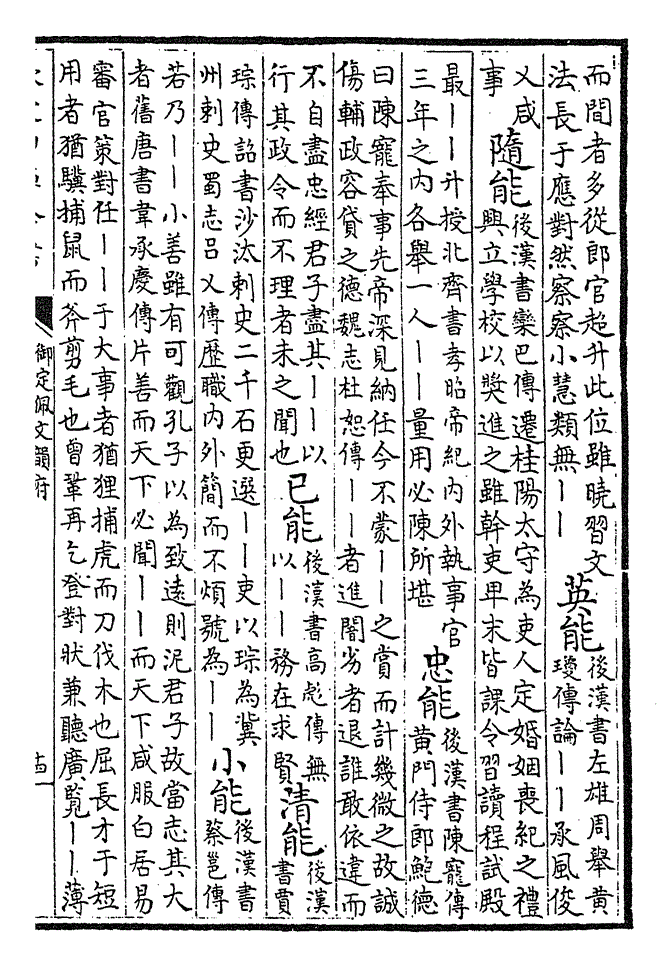 而間者多從郎官超升此位雖曉習文
法長于應對然察察小慧類無丨丨
英能
後漢書左雄周舉黄
瓊傳論丨丨承風俊
乂咸
事
隨能
後漢書欒巴傳遷桂陽太守為吏人定婚姻喪紀之禮
興立學校以奬進之雖幹吏卑末皆課令習讀程試殿
最丨丨升授北齊書孝昭帝紀内外執事官
三年之内各舉一人丨丨量用必陳所堪
忠能
後漢書陳寵傳
黄門侍郎鮑德
曰陳寵奉事先帝深見納任今不蒙丨丨之賞而計幾微之故誠
傷輔政容貸之德魏志杜恕傳丨丨者進闇劣者退誰敢依違而
不自盡忠經君子盡其丨丨以
行其政令而不理者未之聞也
已能
後漢書高彪傳無
以丨丨務在求賢
清能
後漢
書賈
琮傳詔書沙汰刺史二千石更選丨丨吏以琮為冀
州刺史蜀志呂乂傳歷職内外簡而不煩號為丨丨
小能
後漢書
蔡邕傳
若乃丨丨小善雖有可觀孔子以為致遠則泥君子故當志其大
者舊唐書韋承慶傳片善而天下必聞丨丨而天下咸服白居易
審官策對任丨丨于大事者猶狸捕虎而刀伐木也屈長才于短
用者猶驥捕鼠而斧剪毛也曾鞏再乞登對狀兼聽廣覽丨丨薄
御定佩文韻府